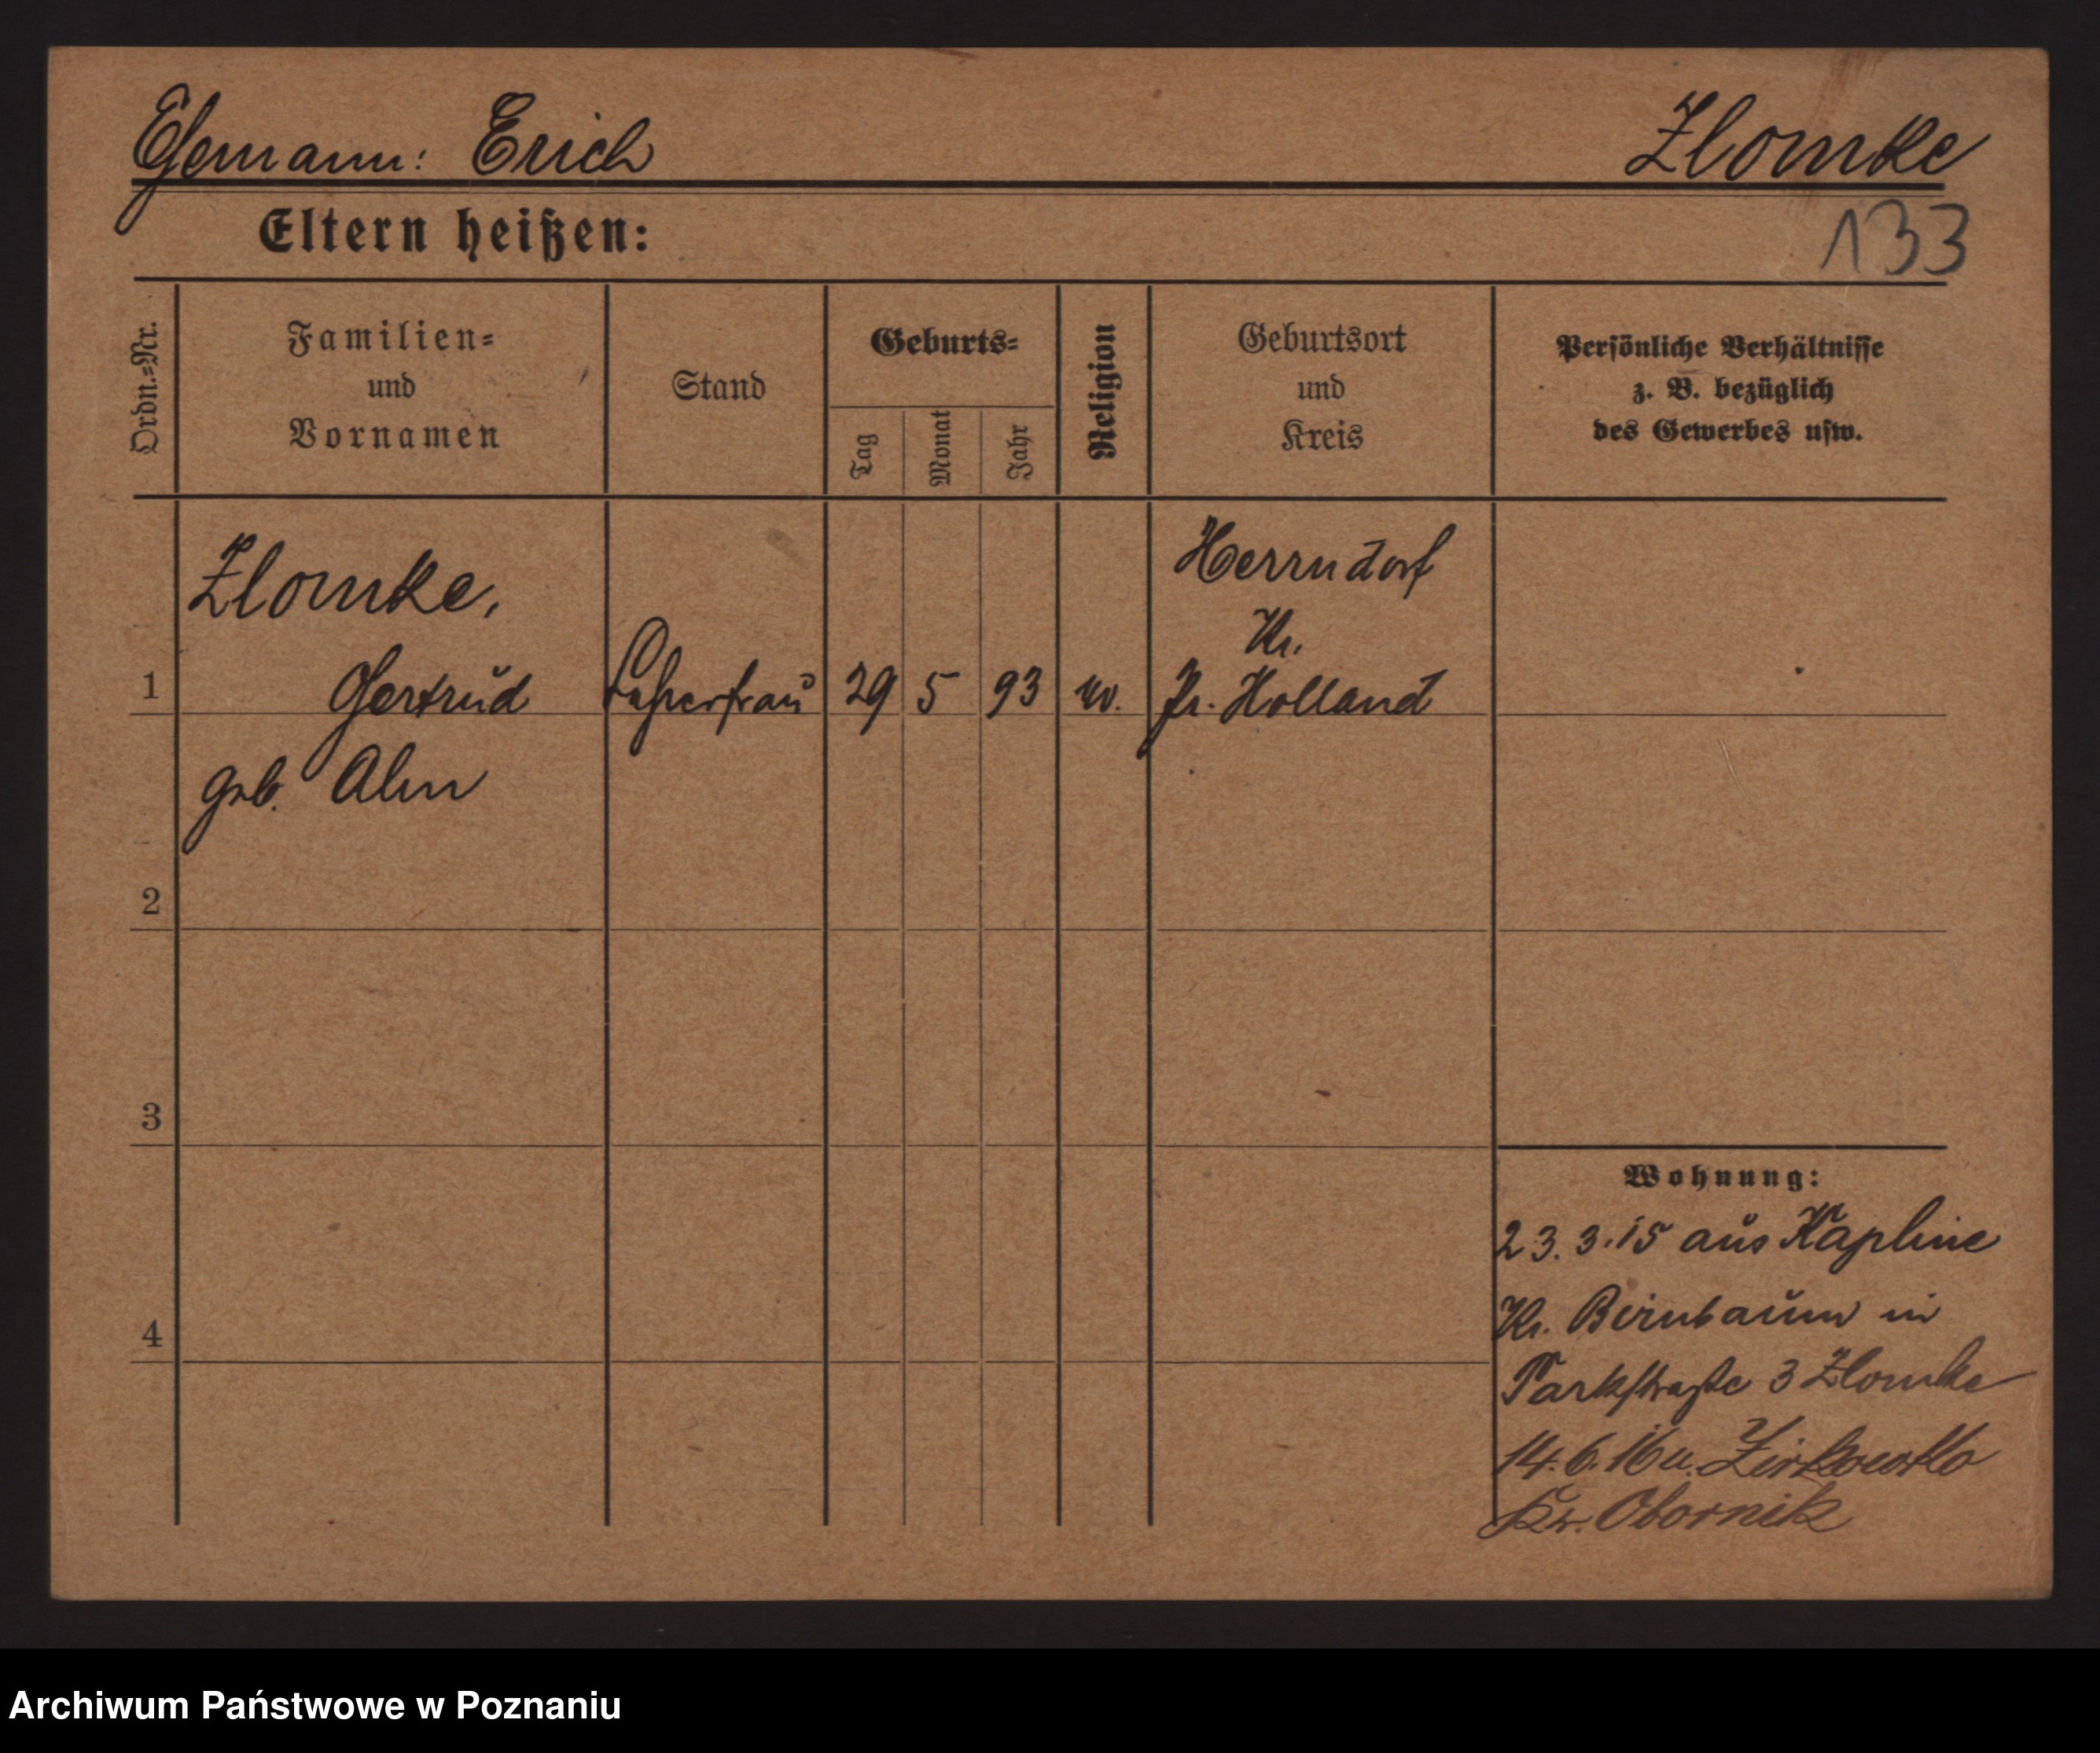 Ehemann: Erich Zlomke
Eltern heißen:
133
Ordn.=Nr.
Familien=
und
Vornamen
Stand
Geburts=
Tag
Monat
Jahr
Religion
Geburtsort
und
Kreis
Persönliche Verhältnisse
z. B. bezüglich
des Gewerbes usw.
Zlomke,
Herrndorf
Kr.
1 Gertrud Lehrerfrau 29 5 93 ev. Pr. Holland
geb. Alm
2
3
4
Wohnung:
23.3.15 aus Kapline
Kr. Birnbaum in
Parkstraße 3 Zlomke
14.6.16 n.
Kr. Obornik
Archiwum Państwowe w Poznaniu